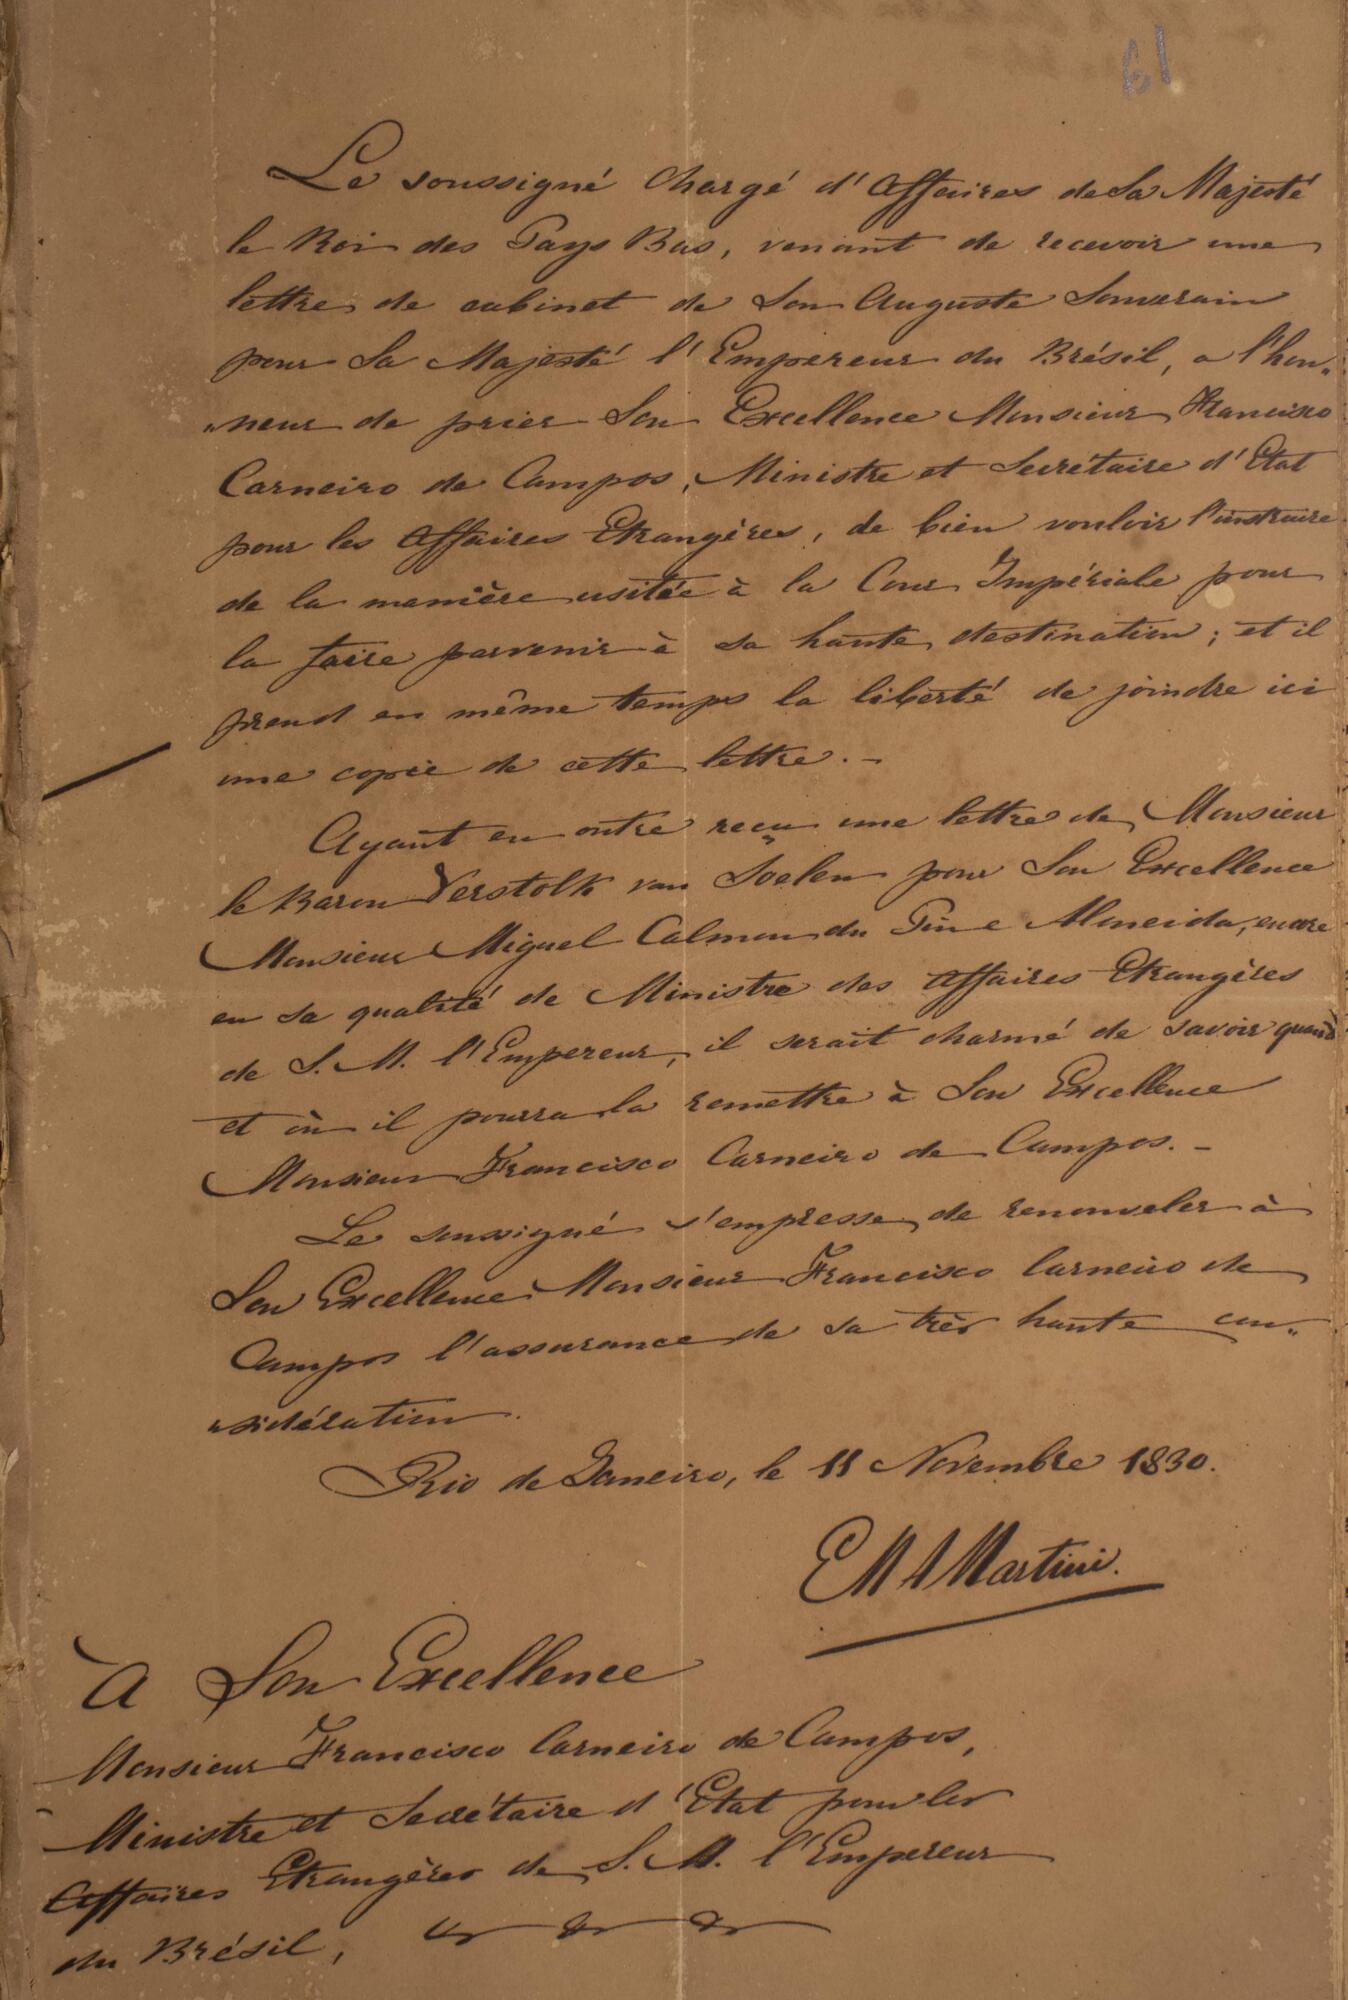 61
Le soussigné chargé d'affaires de Sa Majesté
le Roi des Pays Bas, venant de recevoir une
lettre de cabinet de Son Auguste Souverain
pour Sa Majesté l'Empereur du Brésil, a l'hon„
„neur de prier Son Excellence Monsieur Francisco
Carneiro de Campos, Ministre et Secrétaire d'Etat
pour les affaires Etrangères, de bien vouloir l'instruire
de la manière usitée à la Cour Impériale pour
la faire parvenir à sa haute destination; et il
prend en même temps la liberté de joindre ici
une copie de cette lettre. –
Ayant en outre reçu une lettre de Monsieur
le Baron Verstolk van Soelen pour Son Excellence
Monsieur Miguel Calmon du Pin e Almeida, encore
en sa qualité de Ministre des affaires Etrangères
de S. M. l'Empereur, il serait charmé de savoir quand
et où il pourra la remettre à Son Excellence
Monsieur Francisco Carneiro de Campos. –
Le soussigné s'empresse de renouveler à
Son Excellence Monsieur Francisco Carneiro de
Campos l'assurance de sa très haute con„
„sidération.
Rio de Janeiro, le 11 Novembre 1830.
E M A Martini.
À Son Excellence
Monsieur Francisco Carneiro de Campos,
Ministre et Secrétaire d'Etat pour les
affaires Etrangères de S. M. l'Empereur
du Brésil,